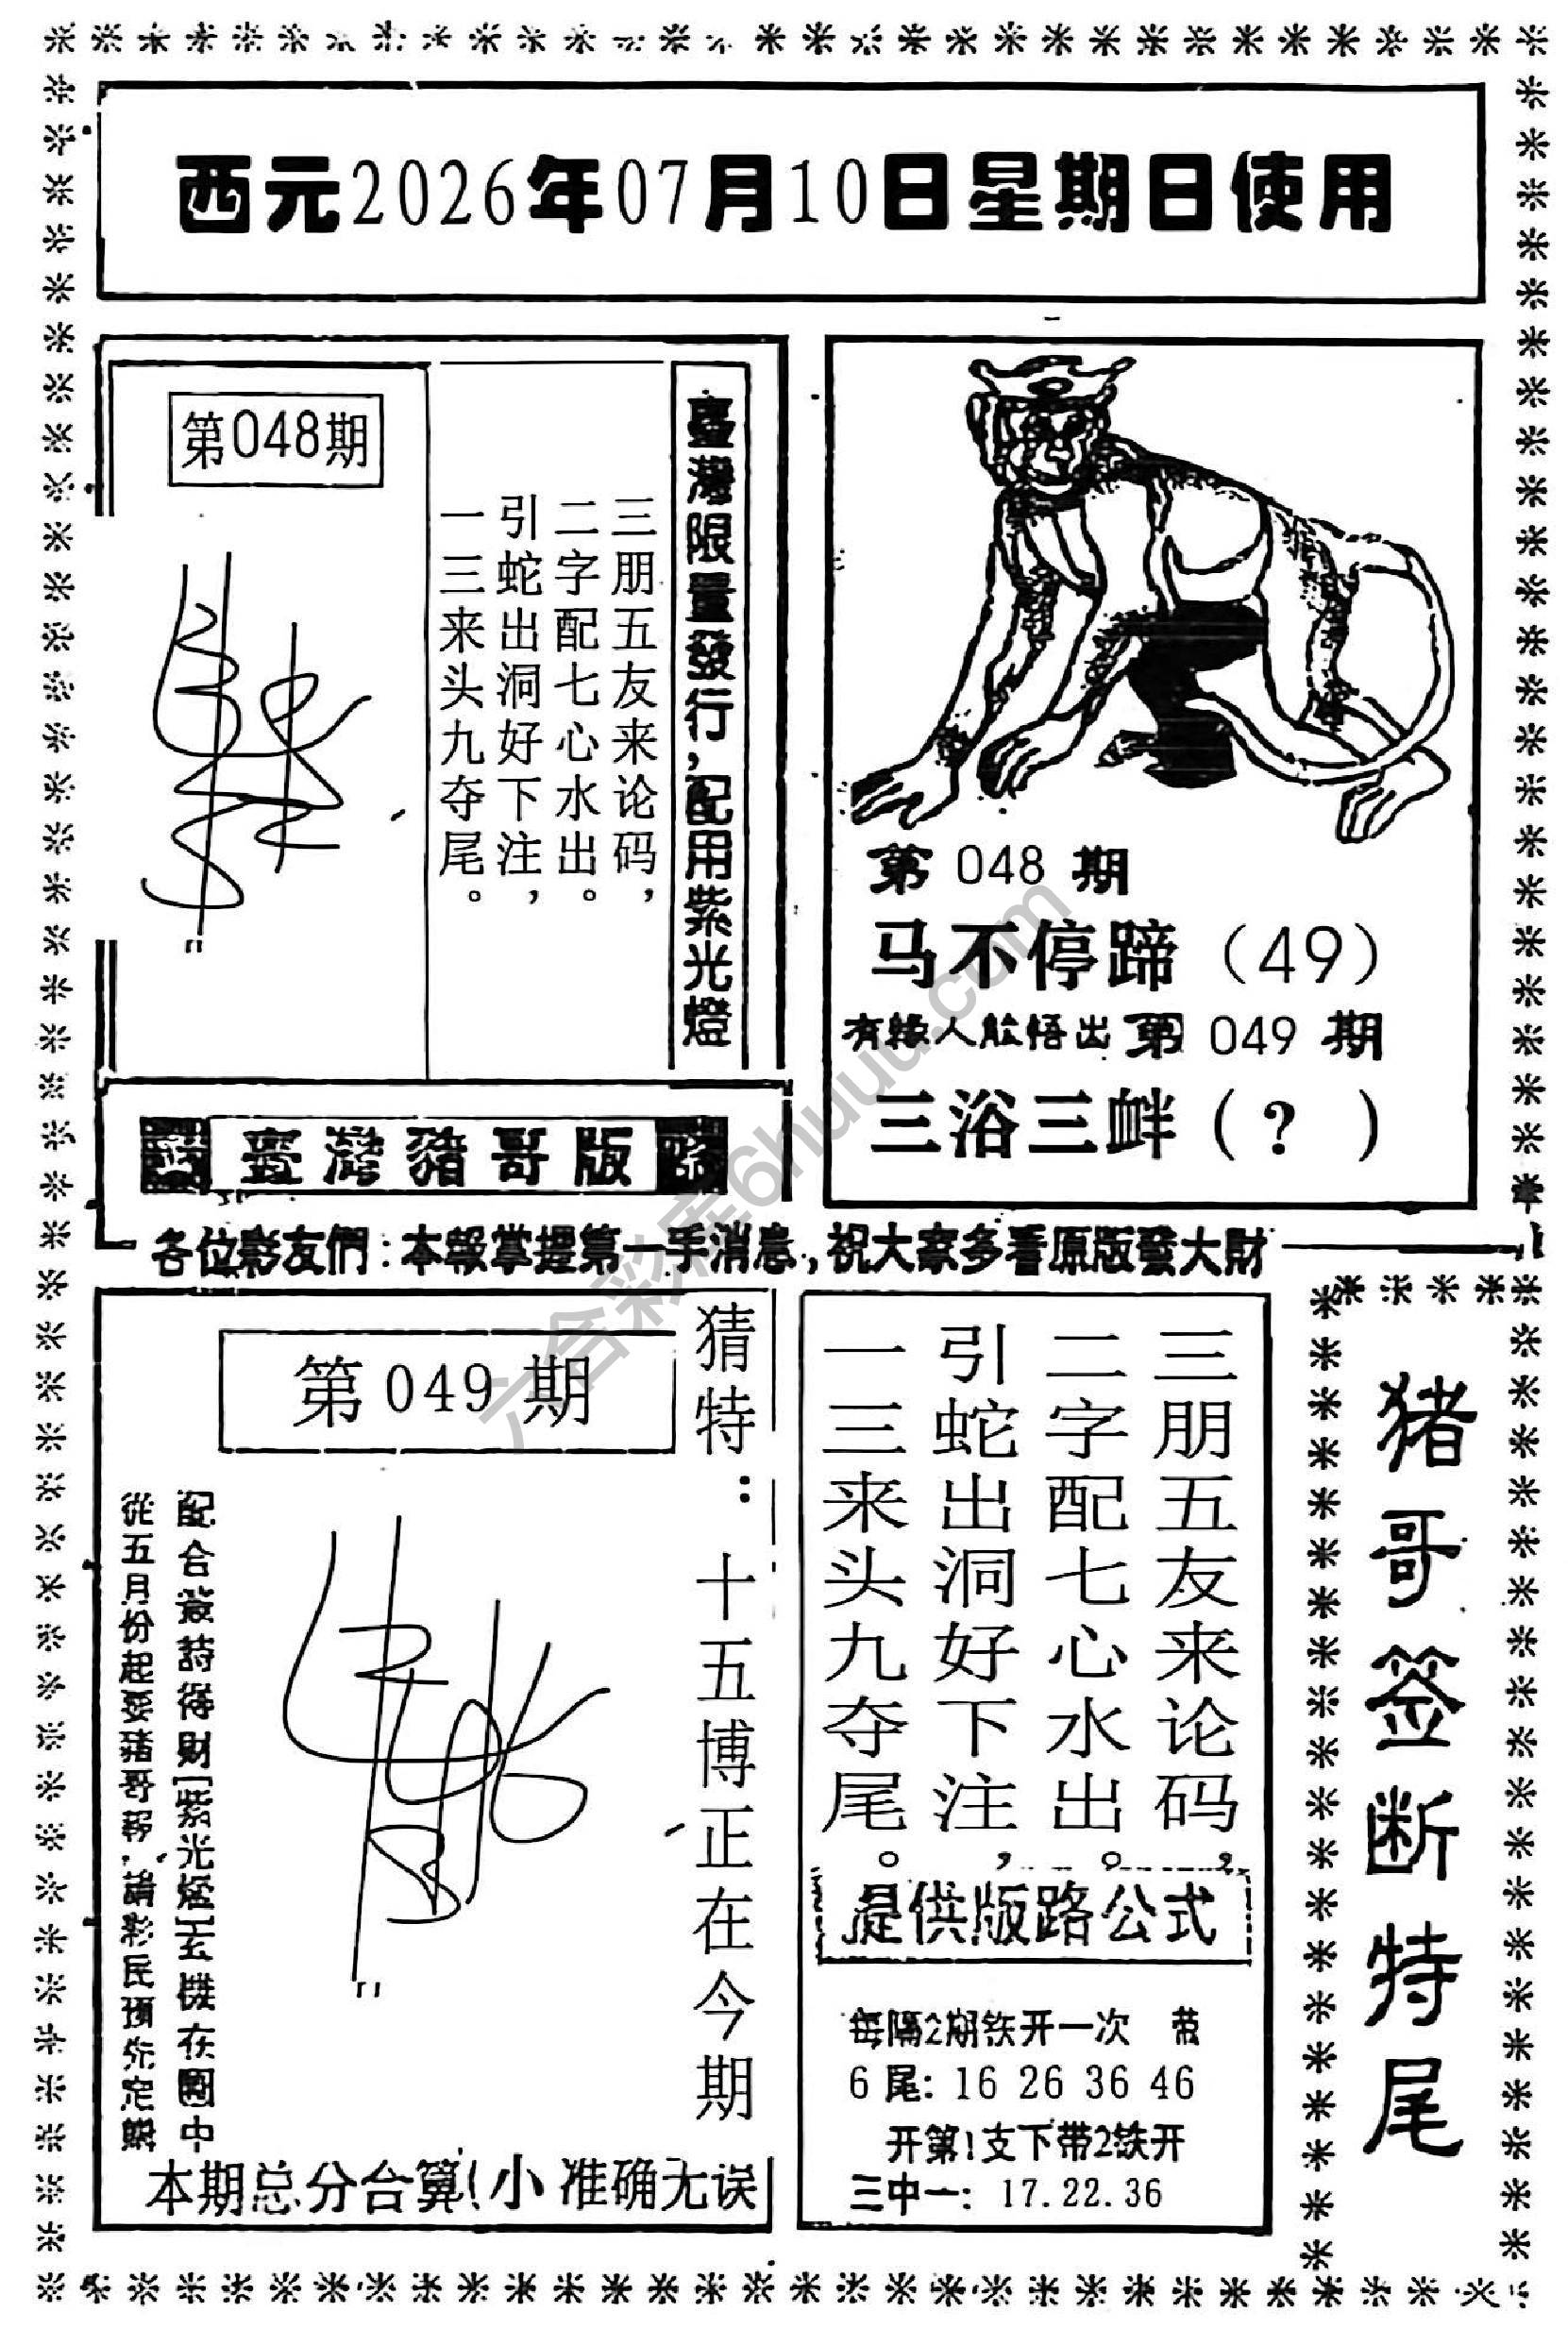 西元2026年07月10日星期日使用
第048期
三朋五友来论码,
二字配七心水出。
引蛇出洞好下注,
一三来头九夺尾。
臺灣限量發行,配用紫光燈
第 048 期
马不停蹄（49）
有缘人能悟出 第 049 期
三浴三衅（？）
臺灣豬哥版路
各位彩友們:本報掌握第一手消息,祝大家多看原版發大財
第 049 期
猜特:十五博正在今期
從五月份起要猪哥報,請彩民預先定購
本期总分合算(小 准确无误
三朋五友来论码,
二字配七心水出。
引蛇出洞好下注,
一三来头九夺尾。
提供版路公式
每隔2期铁开一次 带
6 尾: 16 26 36 46
开第1支下带2铁开
三中一: 17.22.36
猪哥签断特尾
六合彩库6huuu.com